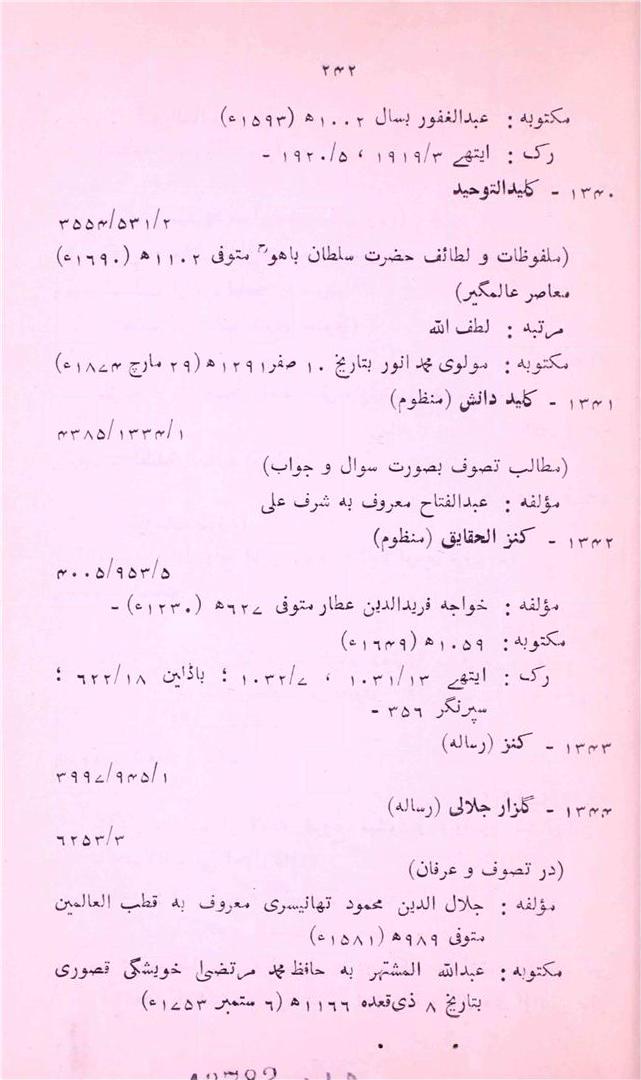 ۲۴۲
مکتوبه : عبدالغفور بسال ۱۰۰۲ھ (۱۵۹۳ء)
رک : ایتھے ۱۹۱۹/۳ ، ۱۹۲۰/۵ -
۱۳۴۰ - کلیدالتوحید
۳۵۵۴/۵۳۱/۲
(ملفوظات و لطائف حضرت سلطان باھوؒ متوفی ۱۱۰۲ھ (۱۶۹۰ء)
معاصر عالمگیر)
مرتبه : لطف الله
مکتوبه : مولوی محمد انور بتاریخ ۱۰ صفر ۱۲۹۱ھ (۲۹ مارچ ۱۸۷۴ء)
۱۳۴۱ - کلید دانش (منظوم)
۴۳۸۵/۱۳۳۴/۱
(مطالب تصوف بصورت سوال و جواب)
مؤلفه : عبدالفتاح معروف به شرف علی
۱۳۴۲ - کنز الحقایق (منظوم)
۴۰۰۵/۹۵۳/۵
مؤلفه : خواجه فریدالدین عطار متوفی ۶۲۷ھ (۱۲۳۰ء) -
مکتوبه : ۱۰۵۹ھ (۱۶۴۹ء)
رک : ایتھے ۱۰۳۱/۱۳ ، ۱۰۳۲/۷ ؛ باڈلین ۶۲۲/۱۸ ؛
سپرنگر ۳۵۶ -
۱۳۴۳ - کنز (رساله)
۳۹۹۷/۹۴۵/۱
۱۳۴۴ - گلزار جلالی (رساله)
۶۲۵۳/۳
(در تصوف و عرفان)
مؤلفه : جلال الدین محمود تھانیسری معروف به قطب العالمین
متوفی ۹۸۹ھ (۱۵۸۱ء)
مکتوبه : عبدالله المشتهر به حافظ محمد مرتضیٰ خویشگی قصوری
بتاریخ ۸ ذی‌قعده ۱۱۶۶ھ (۶ ستمبر ۱۷۵۳ء)